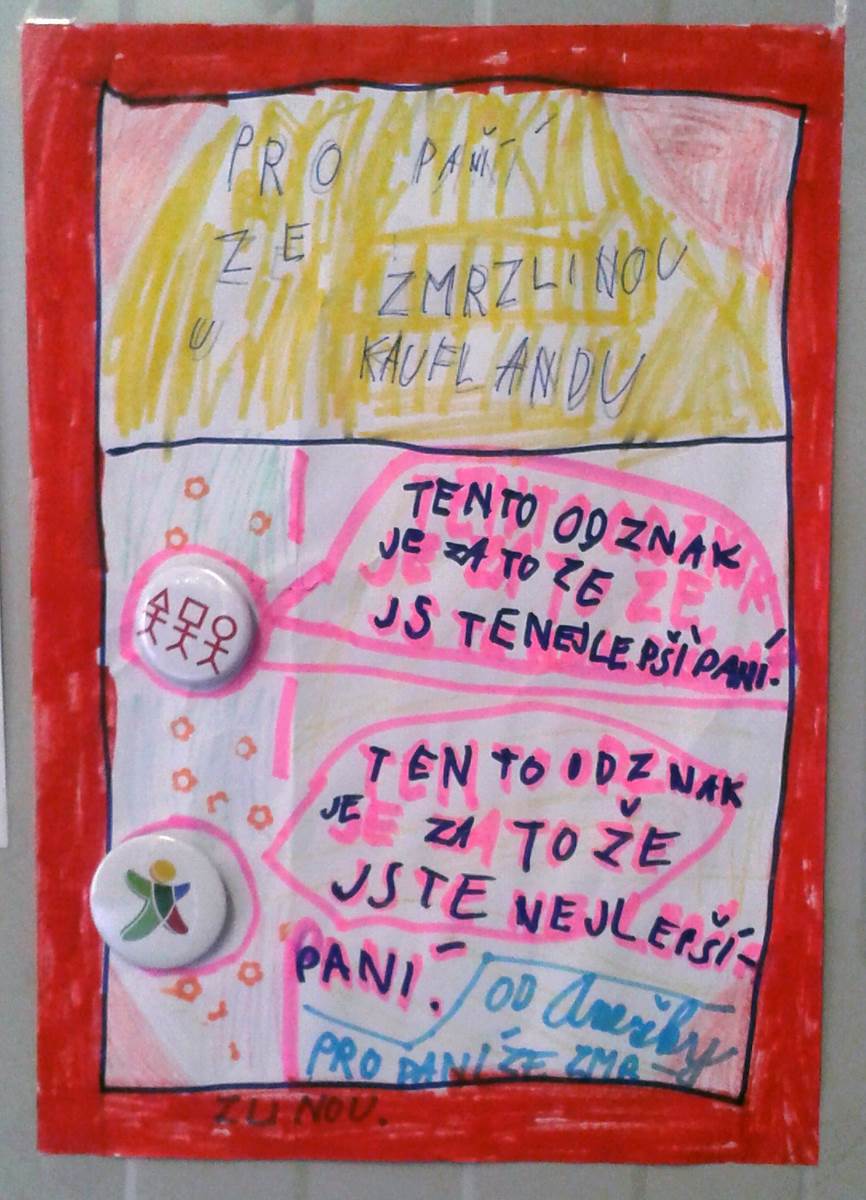 PRO PANÍ
ZE ZMRZLINOU
U KAUFLANDU
TENTO ODZNAK
JE ZA TO ZE
JSTE NEJLEPŠÍ PANÍ.
TENTO ODZNAK
JE ZA TO ŽE
JSTE NEJLEPŠÍ
PANÍ.
OD Anežky
PRO PANÍ ZE ZMR-
ZLINOU.